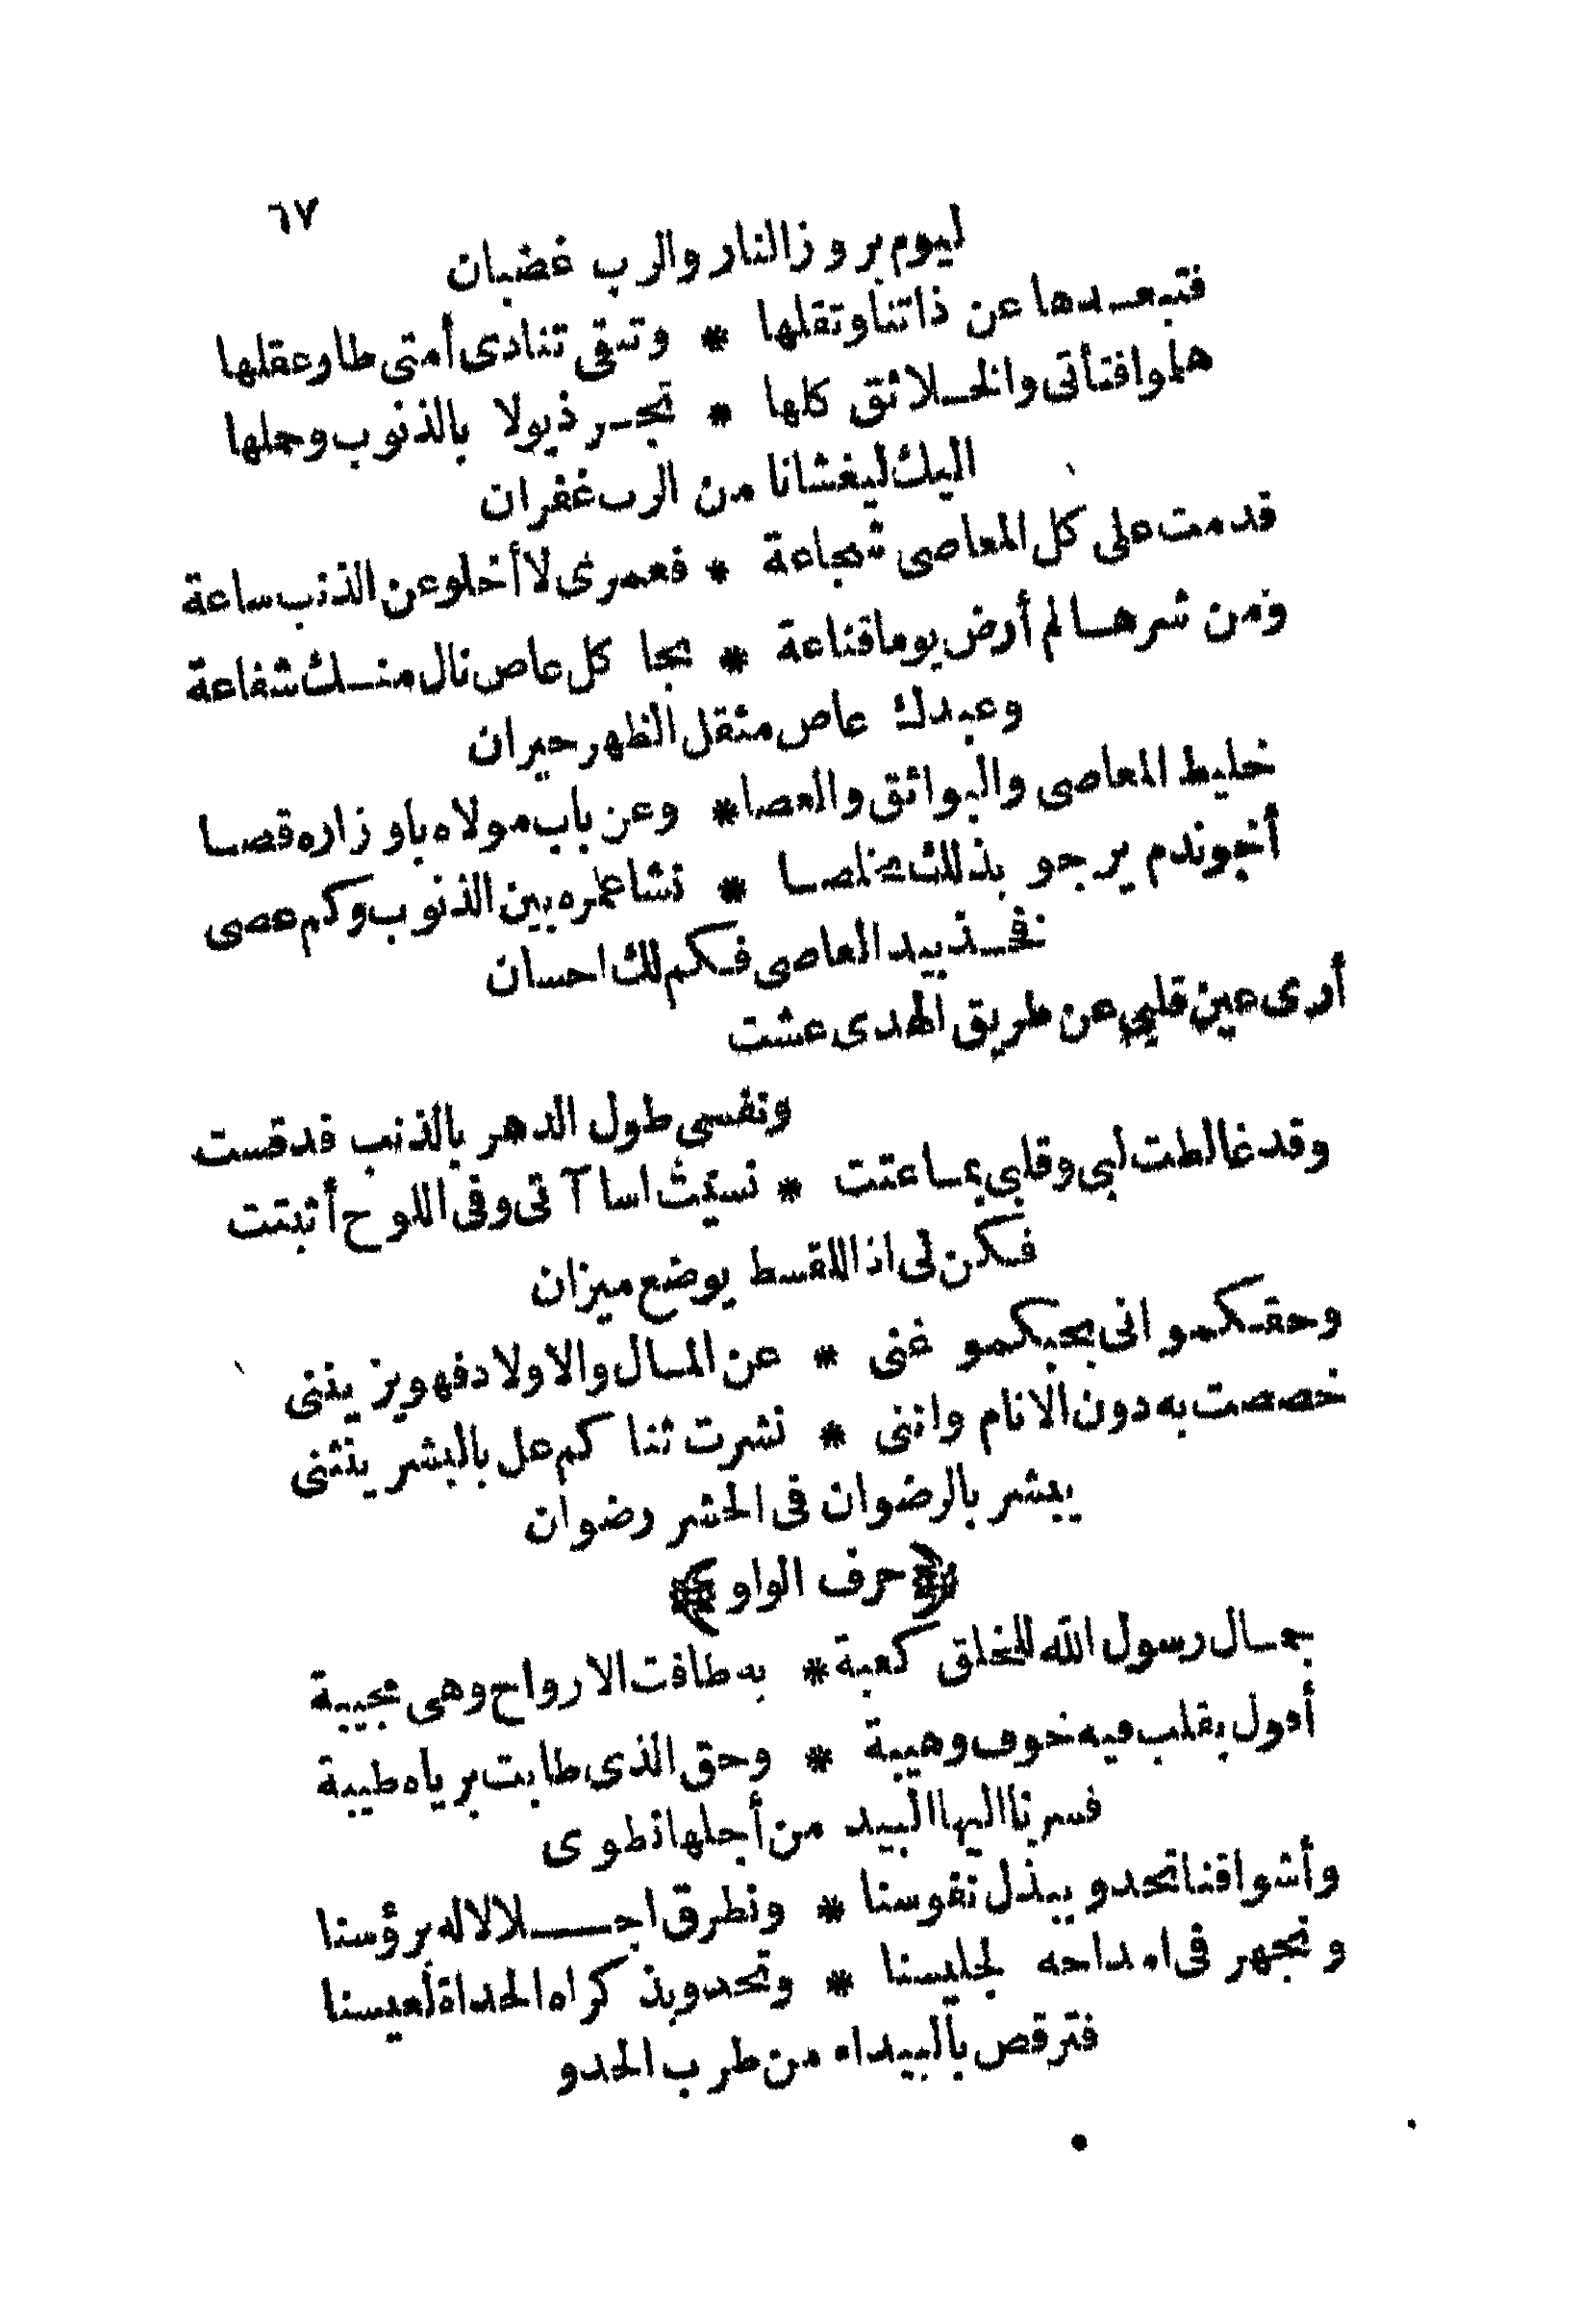 ٦٧
ليوم بروز النار والرب غضبان
فتبعدها عن ذاتنا وتقلها * وتبقى تنادى أمتى طار عقلها
هلموا فتأتى والخلائق كلها * تجر ذيولا بالذنوب وحملها
اليك ليغشانا من الرب غفران
قدمت على كل المعاصى شجاعة * فعمرى لا أخلو عن الذنب ساعة
ومن شرها لم أرض يوما قناعة * نجا كل عاص نال منك شفاعة
وعبدك عاص مثقل الظهر حيران
خليط المعاصى والبوائق والعصا * وعن باب مولاه باوزاره قصا
أخو ندم يرجو بذلك مخلصا * نشا عمره بين الذنوب وكم عصى
فخذ بيد العاصى فكم لك احسان
أرى عين قلبي عن طريق الهدى عشت
ونفسى طول الدهر بالذنب قد قست
وقد غالطت لبى وقلبى بما عتت * نسيت اساآتى وفى اللوح أثبتت
فكن لى اذا للقسط يوضع ميزان
وحقكمو انى بحبكمو غنى * عن المال والاولاد فهو يزيننى
خصصت به دون الانام واننى * نشرت ثنا كم عل بالبشر ينثنى
يبشر بالرضوان فى الحشر رضوان
﴿حرف الواو﴾
جمال رسول الله للخلق كعبة * به طافت الارواح وهى مجيبة
أقول بقلب فيه خوف وهيبة * وحق الذى طابت برياه طيبة
فسرنا اليها البيد من أجلها نطوى
وأشواقنا تحدو ببذل نفوسنا * ونطرق اجلالا له برؤسنا
ونجهر فى امداحه لجليسنا * وتحدو بذكراه الحداة لعيسنا
فترقص بالبيداء من طرب الحدو